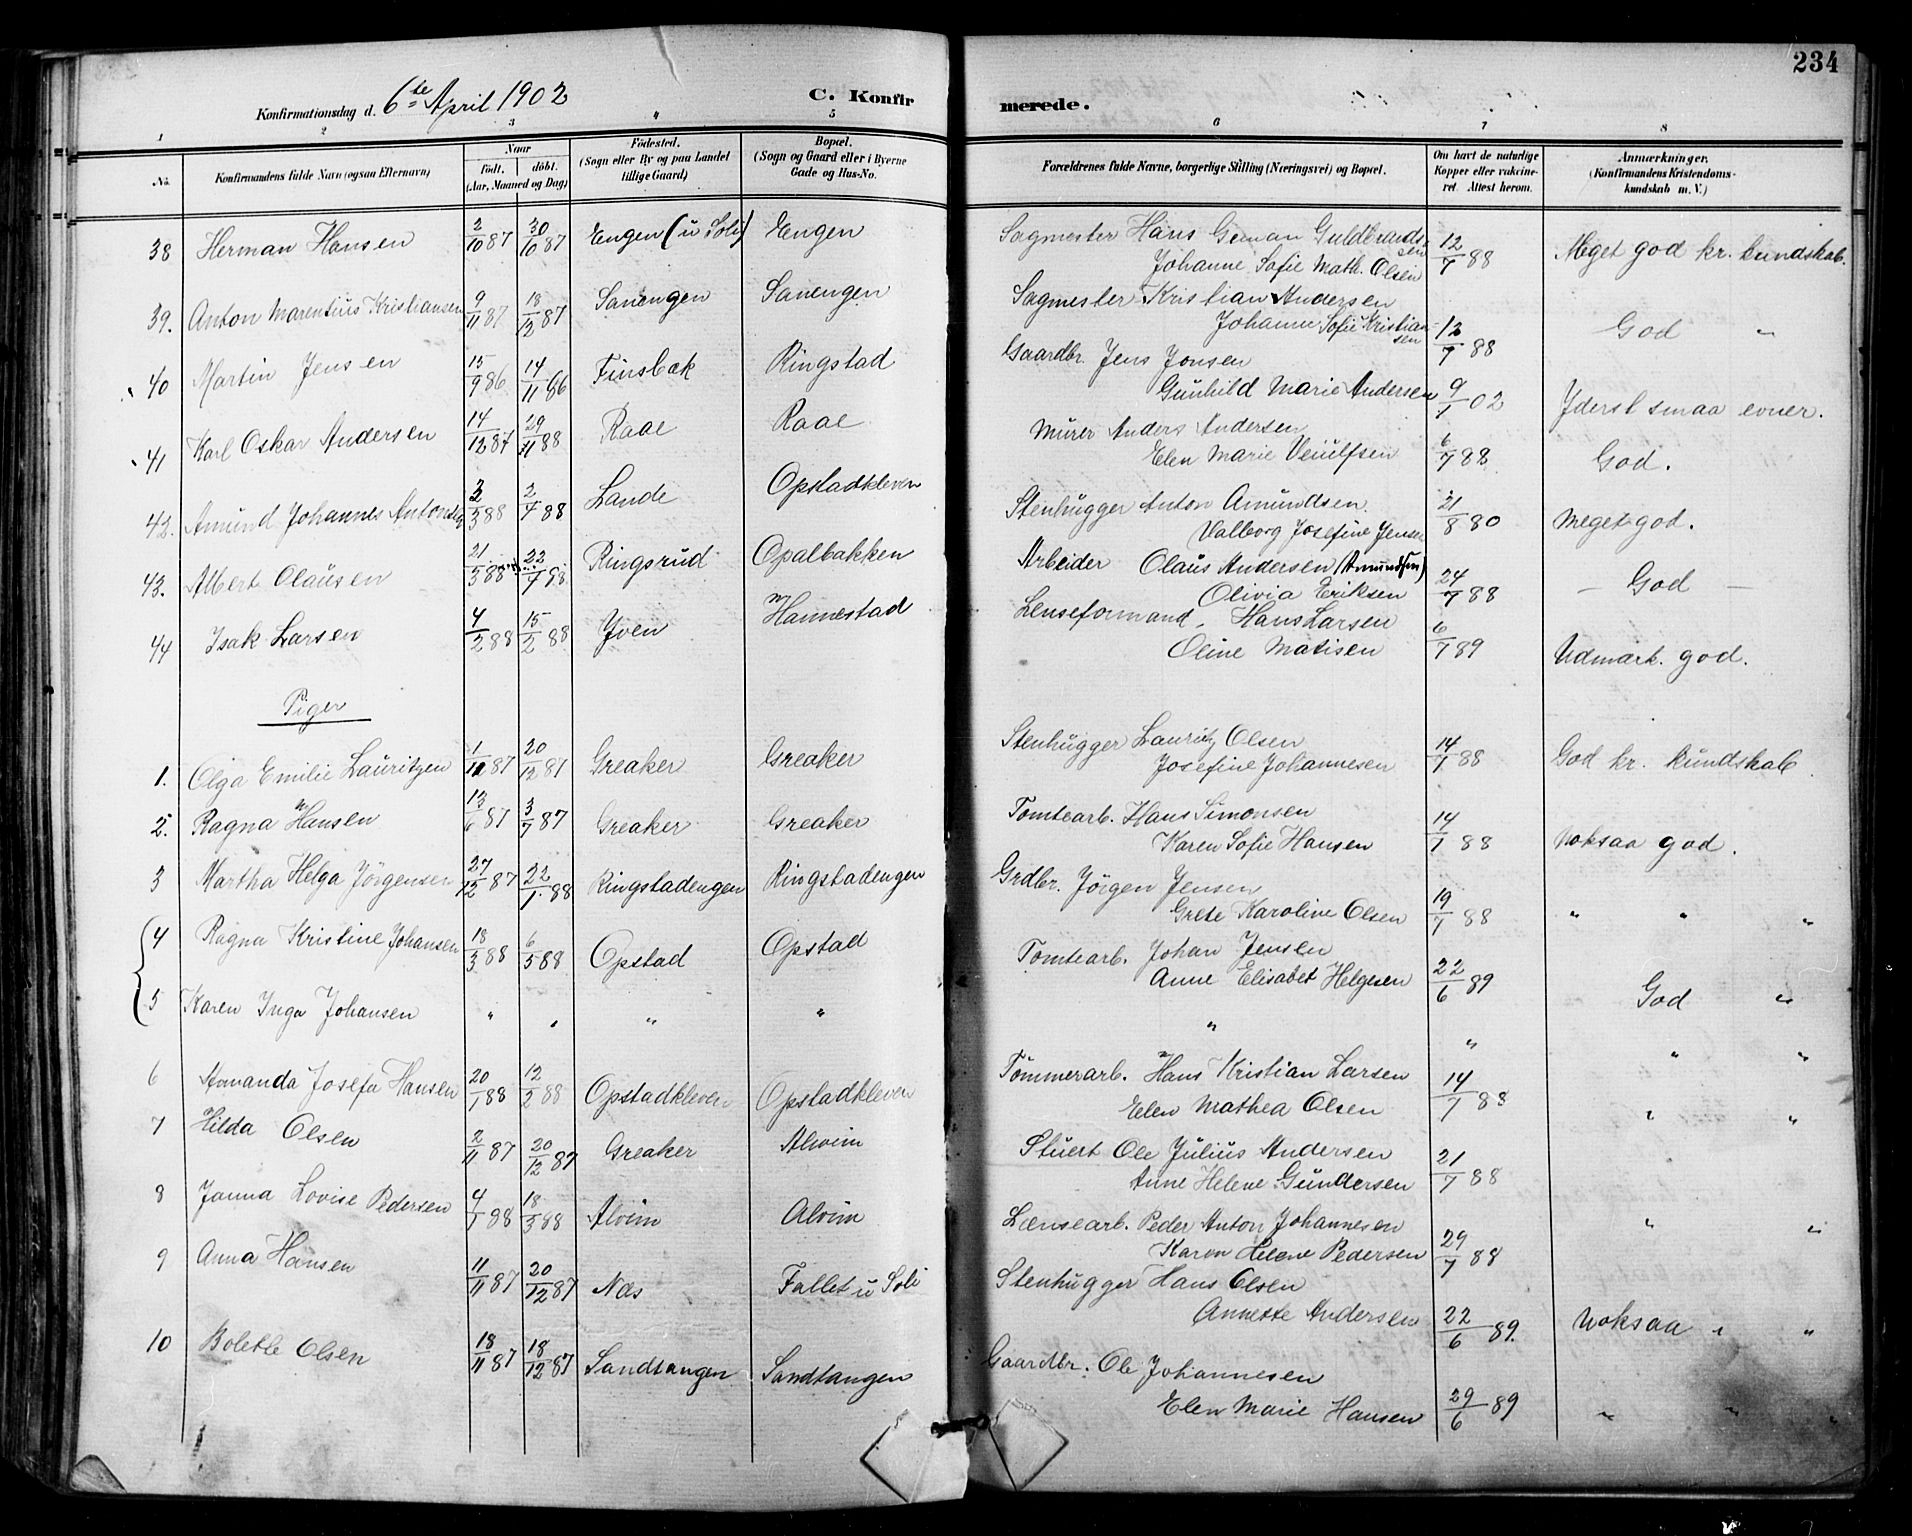 234
Konfirmationsdag d. 6te April 1902 C. Konfirmerede.
1 2 3 4 5 6 7 8
No. Konfirmandens fulde Navn (ogsaa Efternavn) Naar født. døbt. (Aar, Maaned og Dag) Fødested. (Sogn eller By og paa Landet tillige Gaard) Bopæl. (Sogn og Gaard eller i Byerne Gade og Hus-No. Forældrenes fulde Navne, borgerlige Stilling (Næringsvei) og Bopæl. Om havt de naturlige Kopper eller vakcineret. Attest herom. Anmærkninger. (Konfirmandens Kristendomskundskab m. V.)
38 Herman Hansen 2/10 87 30/10 87 Engen (u Soli) Engen Sagmester Hans German Guldbrandsen 12/7 88 Meget god kr. kundskab.
Johanne Sofie Math. Olsen
39. Anton Marentius Kristiansen 9/11 87 18/12 87 Sanengen Sanengen Sagmester Kristian Andersen
Johanne Sofie Kristiansen 12/7 88 God "
40 Martin Jensen 15/9 86 14/11 86 Finsbæk Ringstad Gaardbr. Jens Jonsen
Gunhild Marie Andersen 9/1 02 Yderst smaa evner.
41 Karl Oskar Andersen 14/12 87 29/11 88 Raae Raae Murer Anders Andersen
Elen Marie Veiulfsen 6/7 88 God.
42. Amund Johannes Antonsen 2/3 88 2/4 88 Lande Opstadkleven Stenhugger Anton Amundsen 21/8 80 Meget god.
Valborg Josefine Jensen
43. Albert Olausen 21/3 88 22/7 98 Ringsrud Opalbakken Arbeider Olaus Andersen (Amundsen)
Olivia Eriksen 24/7 88 — God —
44 Isak Larsen 4/2 88 15/2 88 Yven Hannestad Lenseformand. Hans Larsen
Oline Matisen 6/7 89 Udmærk. god.
Piger
1. Olga Emilie Lauritzen 1/11 87 20/12 87 Greaker Greaker Stenhugger Lauritz Olsen
Josefine Johannesen 14/1 88 God kr. kundskab
2. Ragna Hansen 13/6 87 3/7 87 Greaker Greaker Tomtearb. Hans Simonsen
Karen Sofie Hansen 14/1 88 Noksaa god.
3 Martha Helga Jörgensen 27/12 87 22/1 88 Ringstadengen Ringstadengen Grdbr. Jörgen Jensen
Grete Karoline Olsen 19/7 88 " " "
4 Ragna Kristine Johansen 18/3 88 6/5 88 Opstad Opstad Tomtearb. Johan Jensen
Anne Elisabet Helgesen 22/6 89 God "
5 Karen Inga Johansen " " " " " " " "
6 Amanda Josefa Hansen 20/1 88 12/2 88 Opstadkleven Opstadkleven Tömmerarb. Hans Kristian Larsen
Elen Mathea Olsen 14/7 88 " "
7 Hilda Olsen 2/11 87 20/12 87 Greaker Alvim Stuert Ole Julius Andersen
Anne Helene Gundersen 21/7 88
8 Janna Lovise Pedersen 4/1 88 18/3 88 Alvim Alvim Lænsearb. Peder Anton Johannesen " "
Karen Helene Pedersen 29/7 88
9 Anna Hansen 11/11 87 20/12 87 Næs Fallet u Soli Stenhugger Hans Olsen
Annette Andersen 22/6 89. Noksaa " "
10 Bolette Olsen 18/11 87 18/12 87 Sandtangen Sandtangen Gaardbr. Ole Johannesen
Elen Marie Hansen 29/6 89 " " "